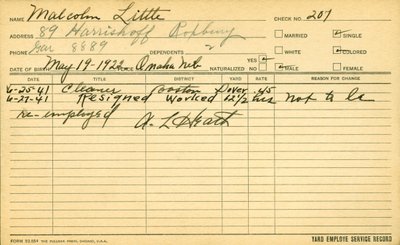 NAME Malcolm Little CHECK NO. 201
ADDRESS 89 Harrishoff Roxbury MARRIED SINGLE
PHONE Gar 8889 DEPENDENTS 2 WHITE COLORED
DATE OF BIRTH May 19-1922 PLACE Omaha neb NATURALIZED YES NO MALE FEMALE
DATE TITLE DISTRICT YARD RATE REASON FOR CHANGE
6-25-41 Cleaner Boston Dover .45
6-27-41 Resigned Worked 12 1/2 hrs not to be
re-employed A. L. Heath
FORM 93.661 THE PULLMAN PRESS, CHICAGO, U.S.A. YARD EMPLOYE SERVICE RECORD